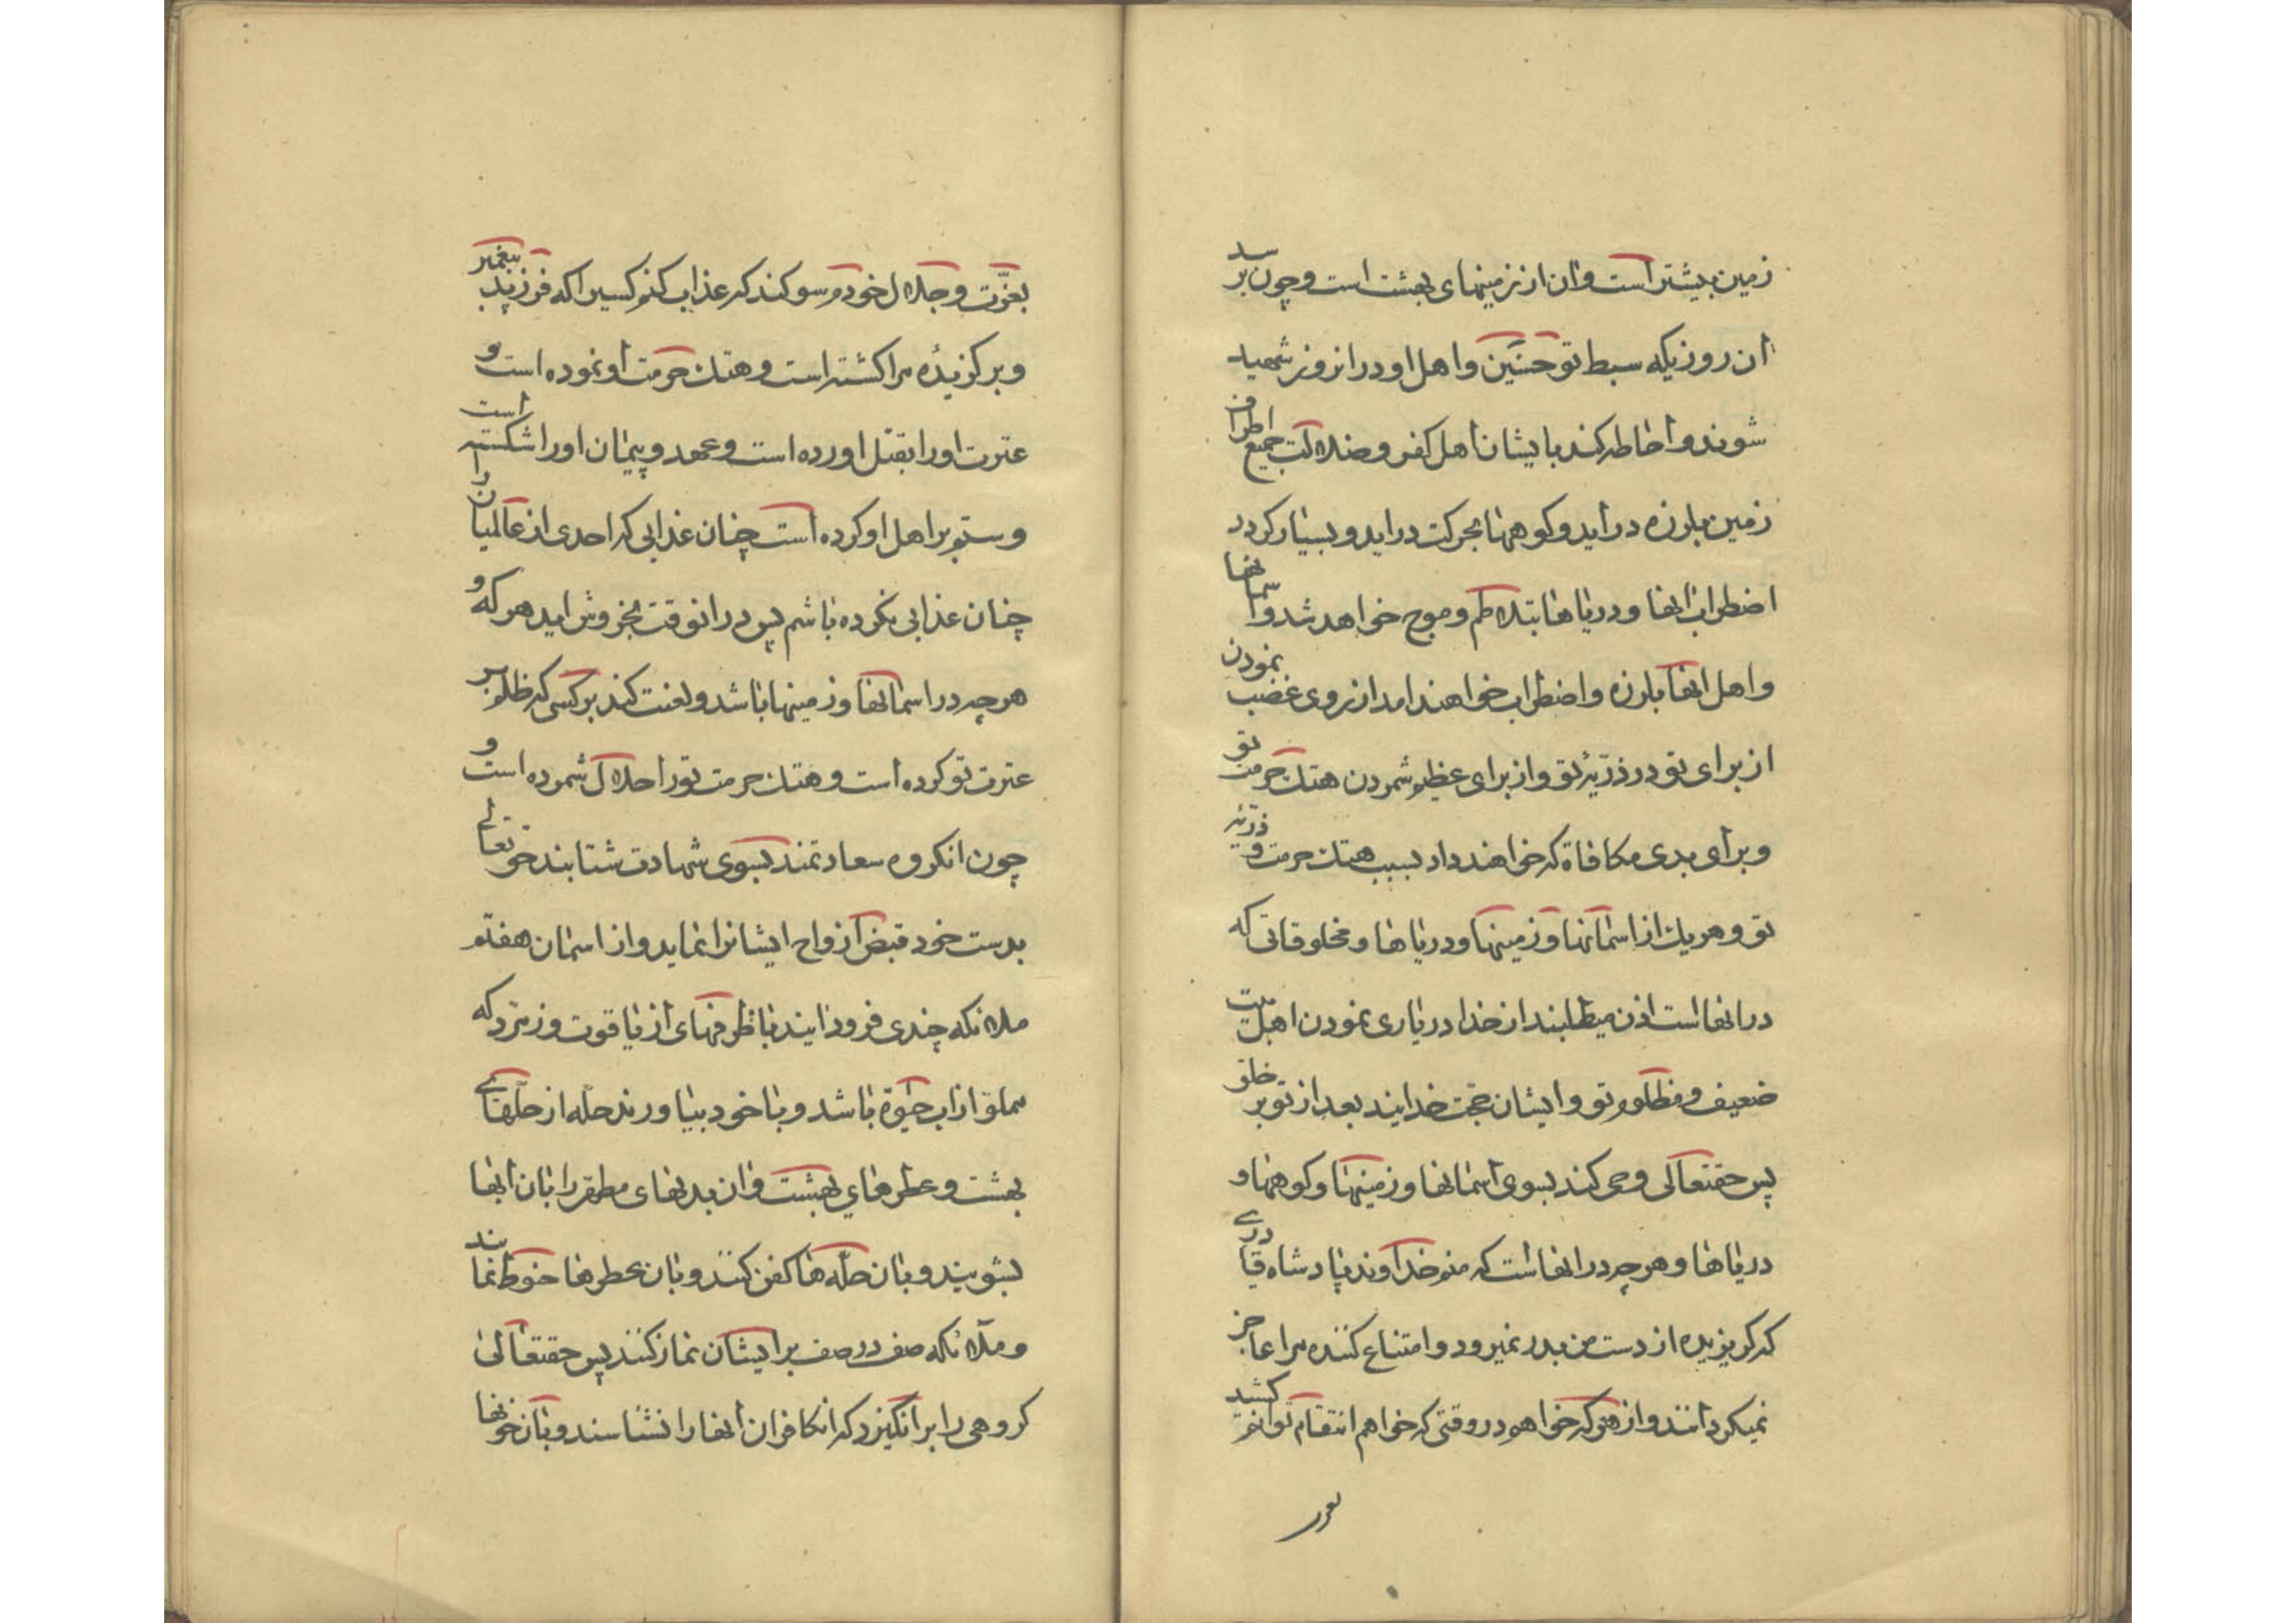 زمین بیشتر است و آن از زمینهای بهشت است و چون برسد
آن روزیکه سبط تو حسین و اهل او در انروز شهید
شوند و احاطه کند بایشان اهل کفر و ضلالت جمیع اطراف
زمین بلرزه در آید و کوهها بحرکت در اید و بسیار کردد
اضطراب انها و دریاها بتلاطم و موج خواهد شد و اسمانها
و اهل انها بلرزه و اضطراب خواهند امد از روی غضب نمودن
از برای تو در ذریّهٔ تو و از برای عظیم شمردن هتك حرمت تو
و برای بدی مکافاة که خواهند داد بسبب هتك حرمت و ذریّه
تو و هر یك از اسمانها و زمینها و دریاها و مخلوقاتی که
در انها است اذن میطلبند از خدا در یاری نمودن اهل بیت
ضعیف و مظلوم تو و ایشان حجت خدایند بعد از تو بر خلق
پس حقتعالی وحی کند بسوی اسمانها و زمینها و کوهها و
دریاها و هر چه در انها است که منم خداوند پادشاه قادری
که کریزنده از دست من بدر نمیرود و امتناع کننده مرا عاجز
نمیکرداند و از هر که خواهم در وقتی که خواهم انتقام توانم کشید
بعزّت و جلال خودم سوکند که عذاب کنم کسیرا که فرزند پیغمبر
و برکزیدهٔ مرا کشته است و هتك حرمت او نموده است و
عترت اورا بقتل اورده است و عهد و پیمان اورا شکسته است
و ستم بر اهل او کرده است چنان عذابی که احدی از عالمیان را
چنان عذابی نکرده باشم پس در انوقت بخروش اید هر که و
هر چه در اسمانها و زمینها باشد و لعنت کند بر کسی که ظلم بر
عترت تو کرده است و هتك حرمت تورا حلال شمرده است و
چون انکروه سعادتمند بسوی شهادت شتابند حقتعالی
بدست خود قبض ارواح ایشانرا نماید و از اسمان هفتم
ملائکه چندی فرود ایند با ظرفهای از یاقوت و زمرّد که
مملوّ از اب حیٰوة باشد و با خود بیاورند حلّه از حلّهای
بهشت و عطرهای بهشت و ان بدنهای مطهّر را بان ابها
بشویند و بان حلّه ها کفن کنند و بان عطرها حنوط نمایند
و ملائکه صف در صف بر ایشان نماز کنند پس حقتعالی
کروهی را بر انکیزد که انکافران انها را نشناسند و بان خونها